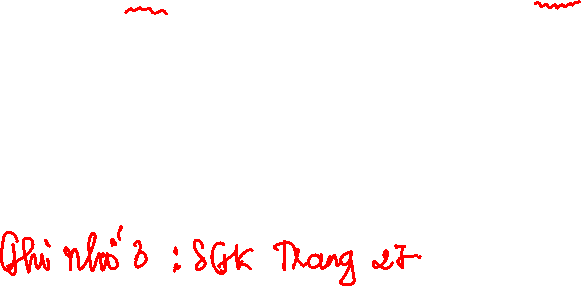 Ghi nhớ 3 : SGK Trang 27